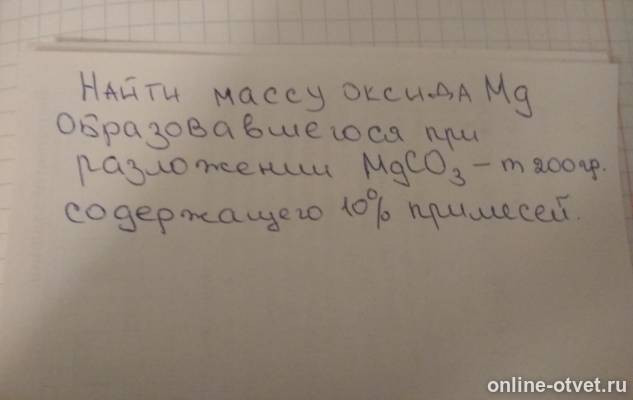 Найти массу оксида Mg
Образовавшегося при
разложении MgCO₃ - m 200гр.
содержащего 10% примесей.
online-otvet.ru